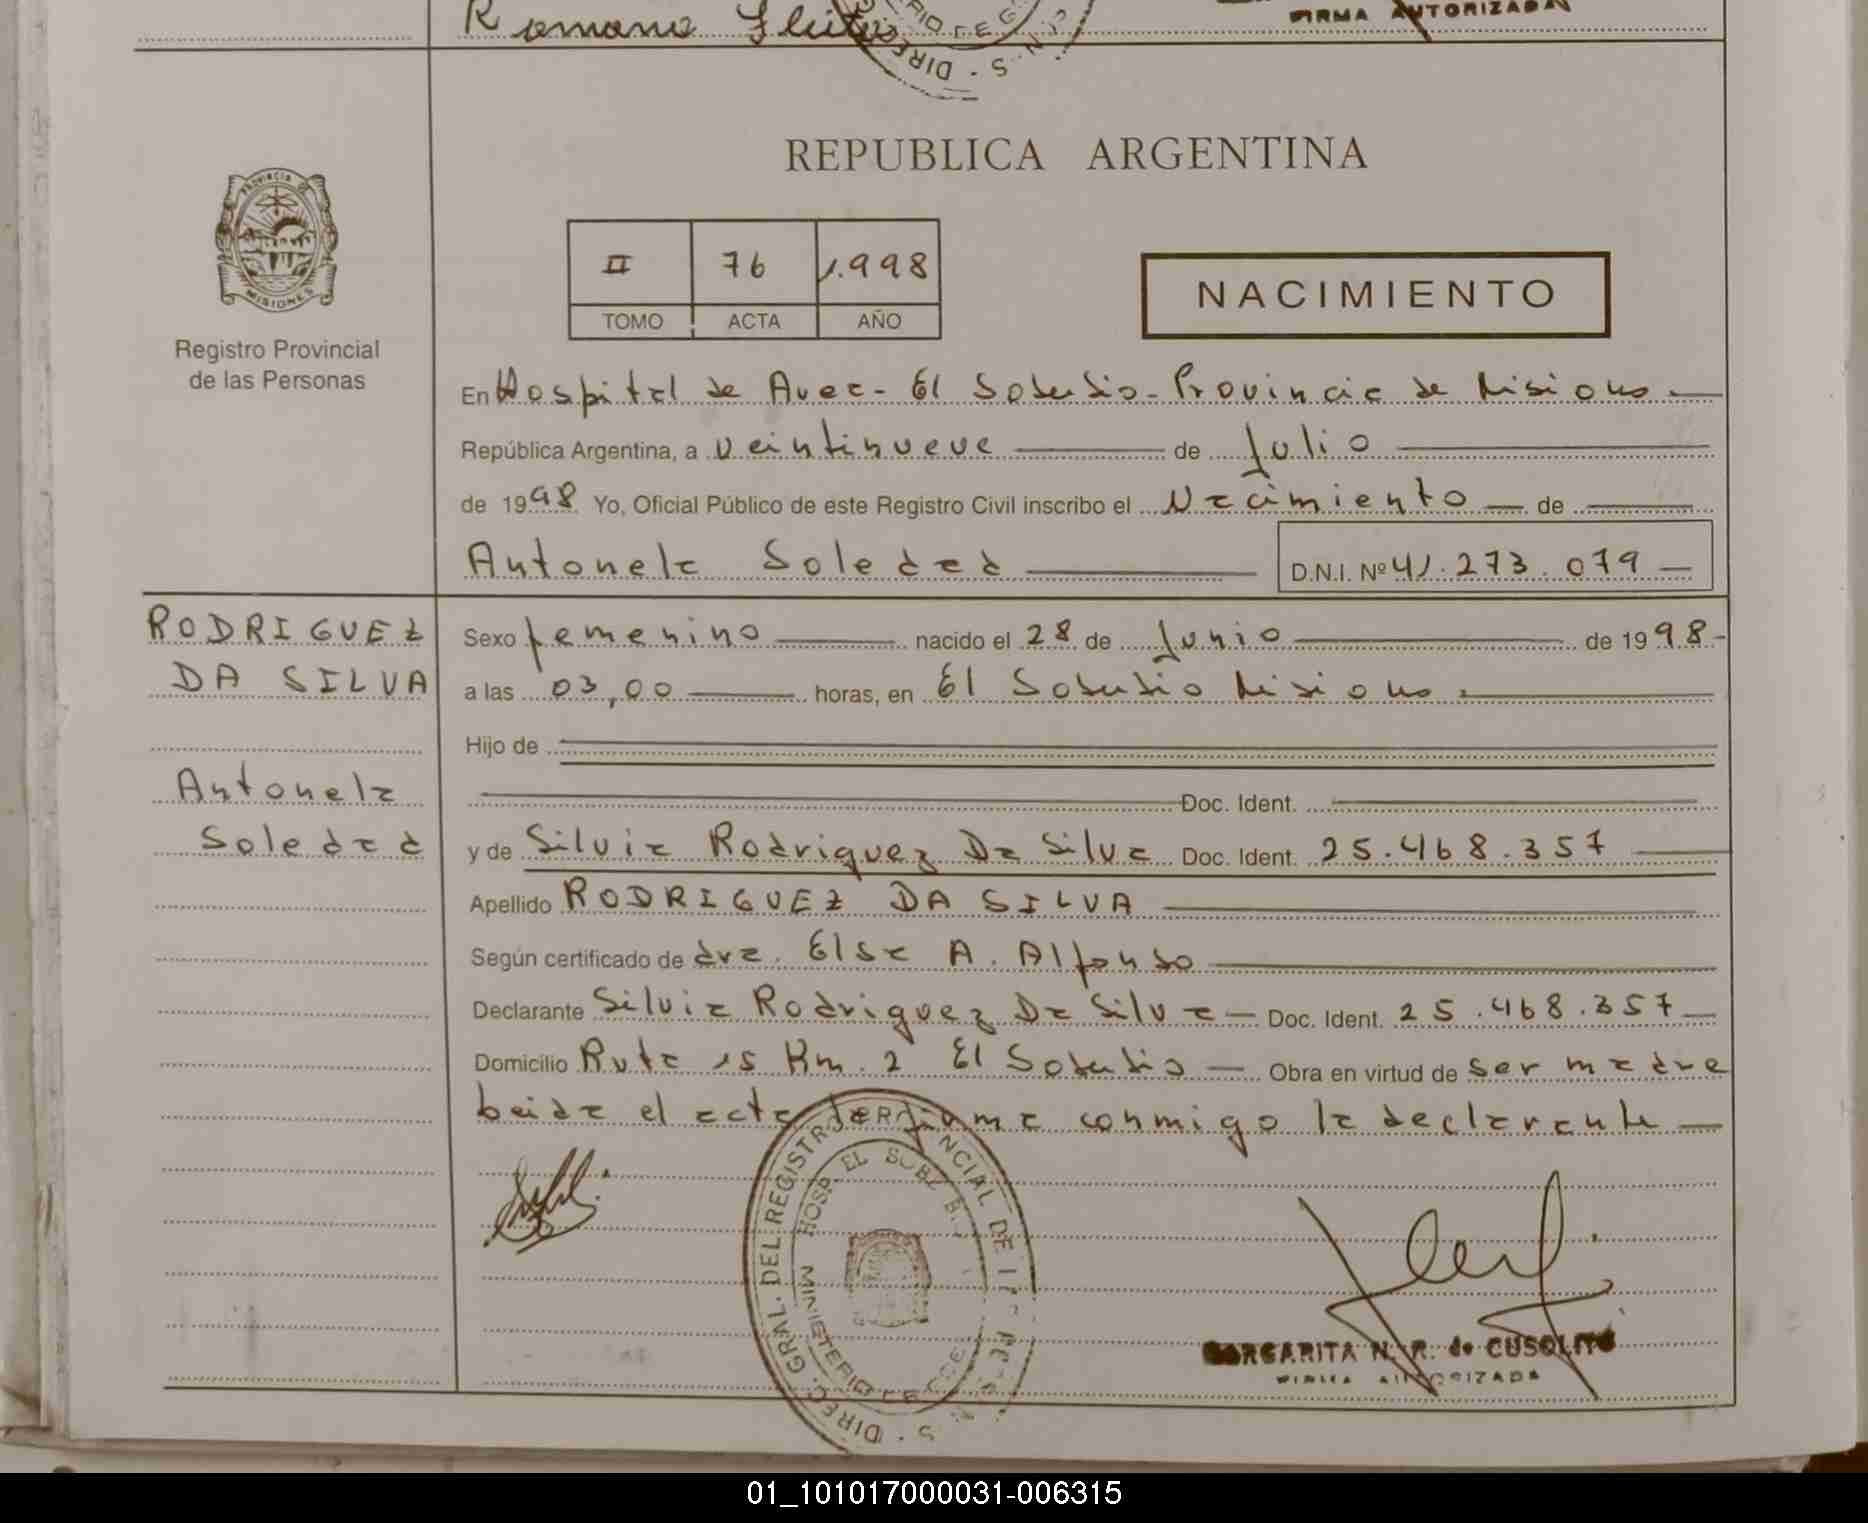 Romana
FIRMA AUTORIZADA
REPUBLICA ARGENTINA
PROVINCIA DE
MISIONES
Registro Provincial
de las Personas
II 76 1.998
TOMO ACTA AÑO
NACIMIENTO
En Hospital de Area - El Soberbio - Provincia de Misiones
República Argentina, a veintinueve de Julio
de 1998 Yo, Oficial Público de este Registro Civil inscribo el Nacimiento de
Antonela Soledad D.N.I. Nº 41.273.079
RODRIGUEZ
DA SILVA
Antonela
Soledad
Sexo femenino nacido el 28 de Junio de 1998
a las 03,00 horas, en El Soberbio Misiones
Hijo de
Doc. Ident.
y de Silvia Rodriguez Da Silva Doc. Ident. 25.468.357
Apellido RODRIGUEZ DA SILVA
Según certificado de dra. Elsa A. Alfonso
Declarante Silvia Rodriguez Da Silva Doc. Ident. 25.468.357
Domicilio Ruta 15 Km. 2 El Soberbio Obra en virtud de ser madre
leida el acta la firma conmigo la declarante
DIREC. GRAL. DEL REGISTRO PROVINCIAL DE
HOSP. EL SOBERB
MINISTERIO DE
MARGARITA N. R. de CUSOLITO
FIRMA AUTORIZADA
01_101017000031-006315